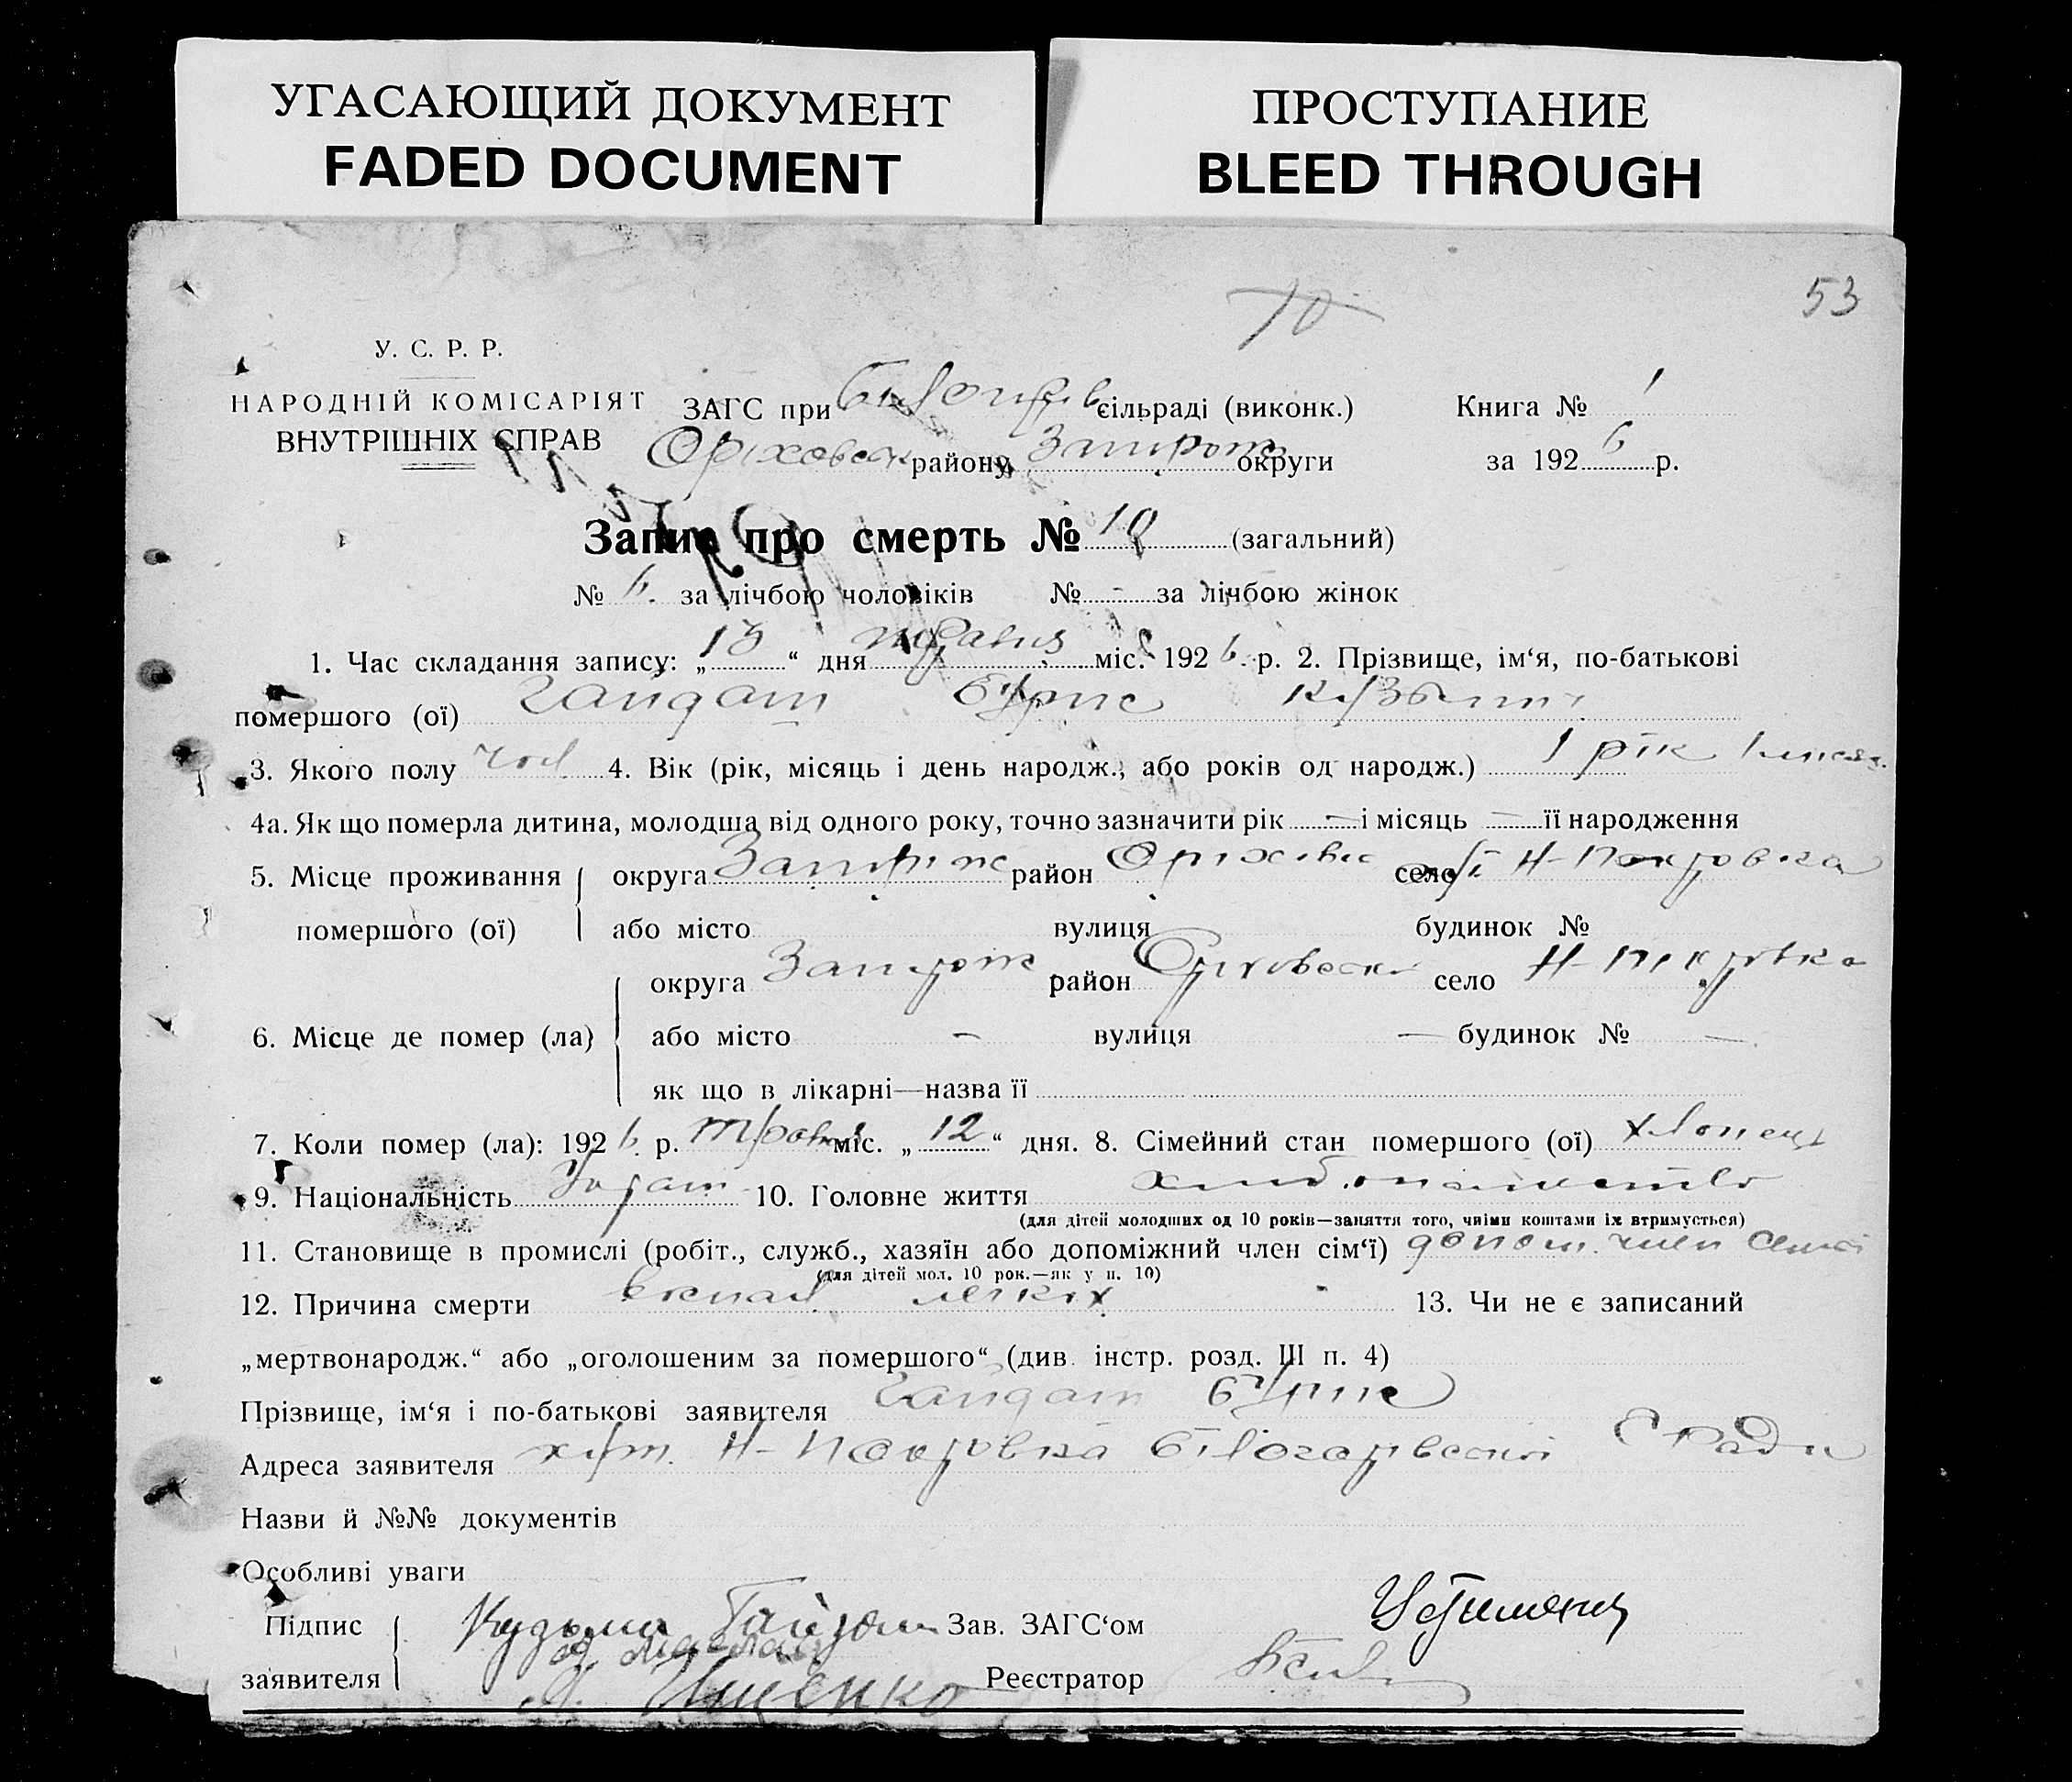 УГАСАЮЩИЙ ДОКУМЕНТ
FADED DOCUMENT
ПРОСТУПАНИЕ
BLEED THROUGH
53
70
У. С. Р. Р.
НАРОДНІЙ КОМІСАРІЯТ
ВНУТРІШНІХ СПРАВ
ЗАГС при сільраді (виконк.) Книга № 1
Оріховськ району Запрож округи за 1926 р.
Запис про смерть № 10 (загальний)
№ 6. за лічбою чоловіків № - за лічбою жінок
1. Час складання запису: „13“ дня травня міс. 1926. р. 2. Прізвище, ім‘я, по-батькові
помершого (ої) Гайдам
3. Якого полу чол 4. Вік (рік, місяць і день народж., або років од народж.) 1 рік 1 місяц.
4а. Як що померла дитина, молодша від одного року, точно зазначити рік — і місяць — її народження
5. Місце проживання помершого (ої) округа Запоріж район Оріхівс село Н-Покровка
або місто вулиця будинок №
6. Місце де помер (ла) округа Запорож район Оріховськ село Н-Покровка
або місто – вулиця — будинок № —
як що в лікарні—назва її
7. Коли помер (ла): 1926. р. травня міс. „12“ дня. 8. Сімейний стан помершого (ої) хлопець
9. Національність 10. Головне життя
(для дітей молодших од 10 років—заняття того, чиїми коштами їх втримується)
11. Становище в промислі (робіт., служб., хазяїн або допоміжний член сім‘ї) допом. член сімї
(для дітей мол. 10 рок.—як у п. 10)
12. Причина смерти легких 13. Чи не є записаний
„мертвонародж.“ або „оголошеним за помершого“ (див. інстр. розд. III п. 4)
Прізвище, ім‘я і по-батькові заявителя Гайдам
Адреса заявителя хут. Н-Покровка С Ради
Назви й №№ документів
Особливі уваги
Підпис заявителя Кузьма Гайдам Зав. ЗАГС‘ом
Іщенко Реєстратор